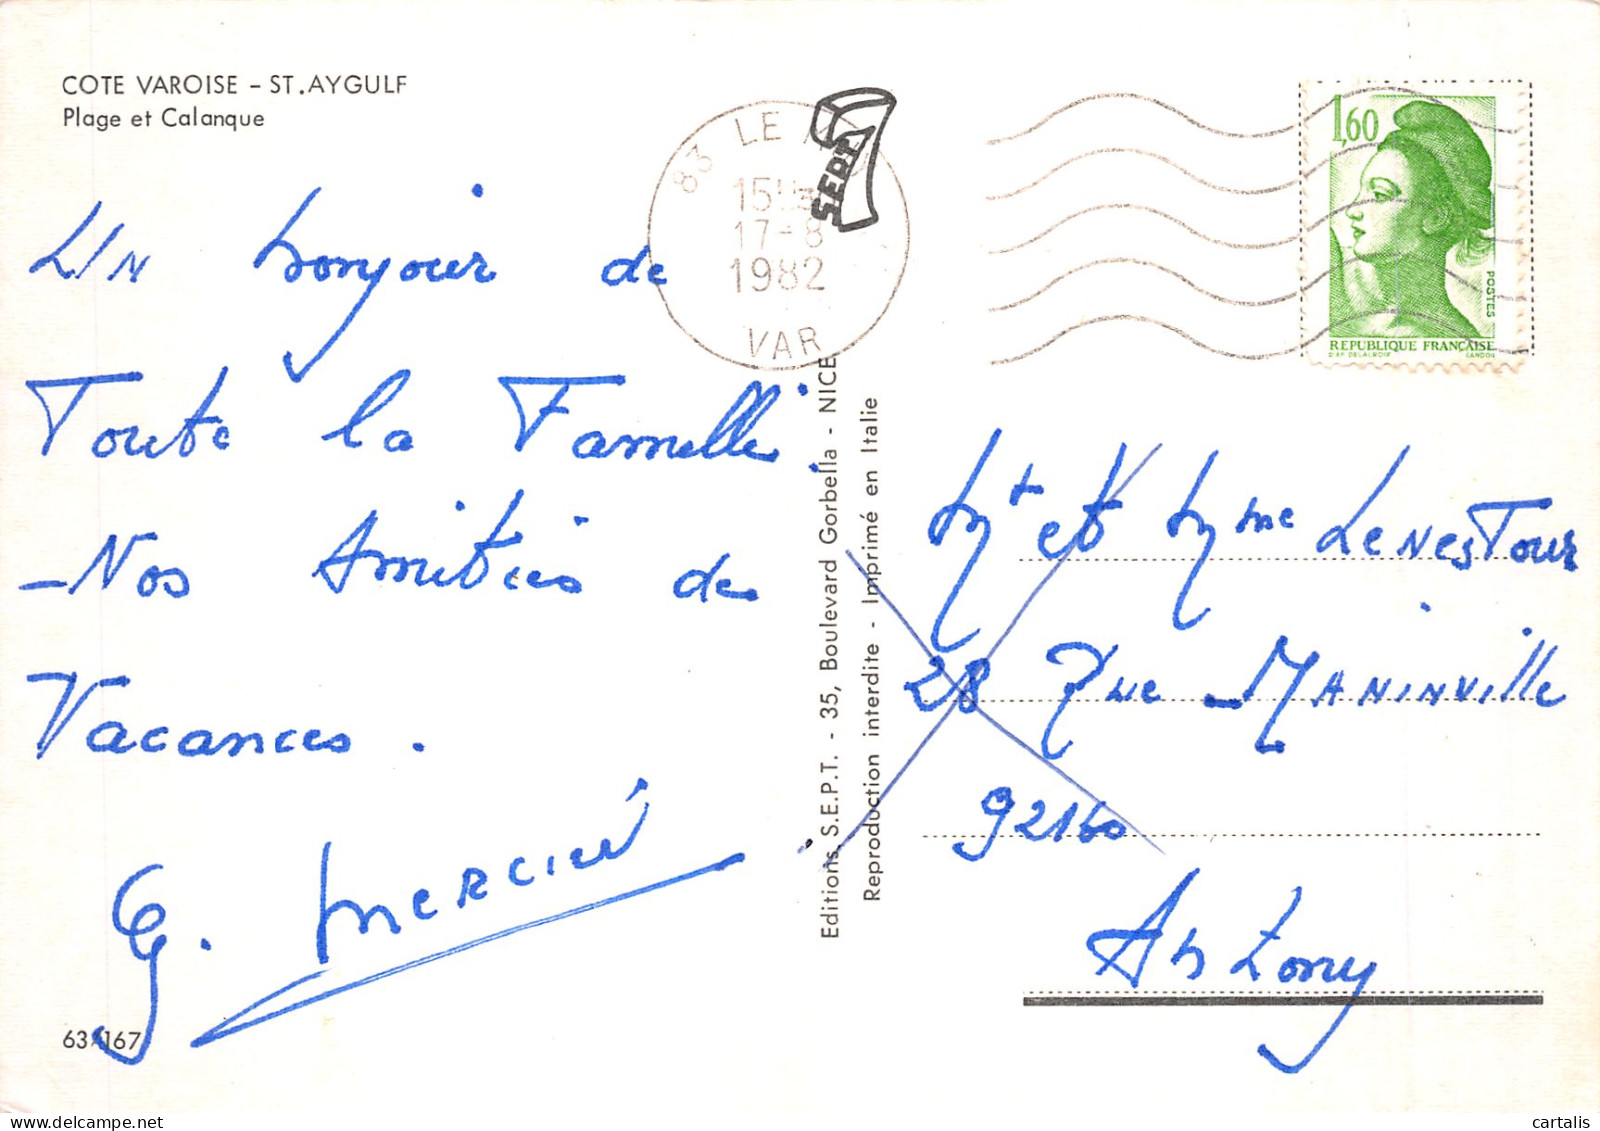 COTE VAROISE - ST.AYGULF
Plage et Calanque
Un bonjour de
Toute la Famille.
Nos Amitiés de
Vacances.
G. Mercier
63/167
83 LE
15H
17-8
1982
VAR
SEPT
Editions, S.E.P.T. - 35, Boulevard Gorbella - NICE
Reproduction interdite - Imprimé en Italie
1,60
POSTES
REPUBLIQUE FRANÇAISE
D'AP. DELACROIX GANDON
Mr et Mme LenesTour
28 Rue Maninville
92160
Antony
cartalis